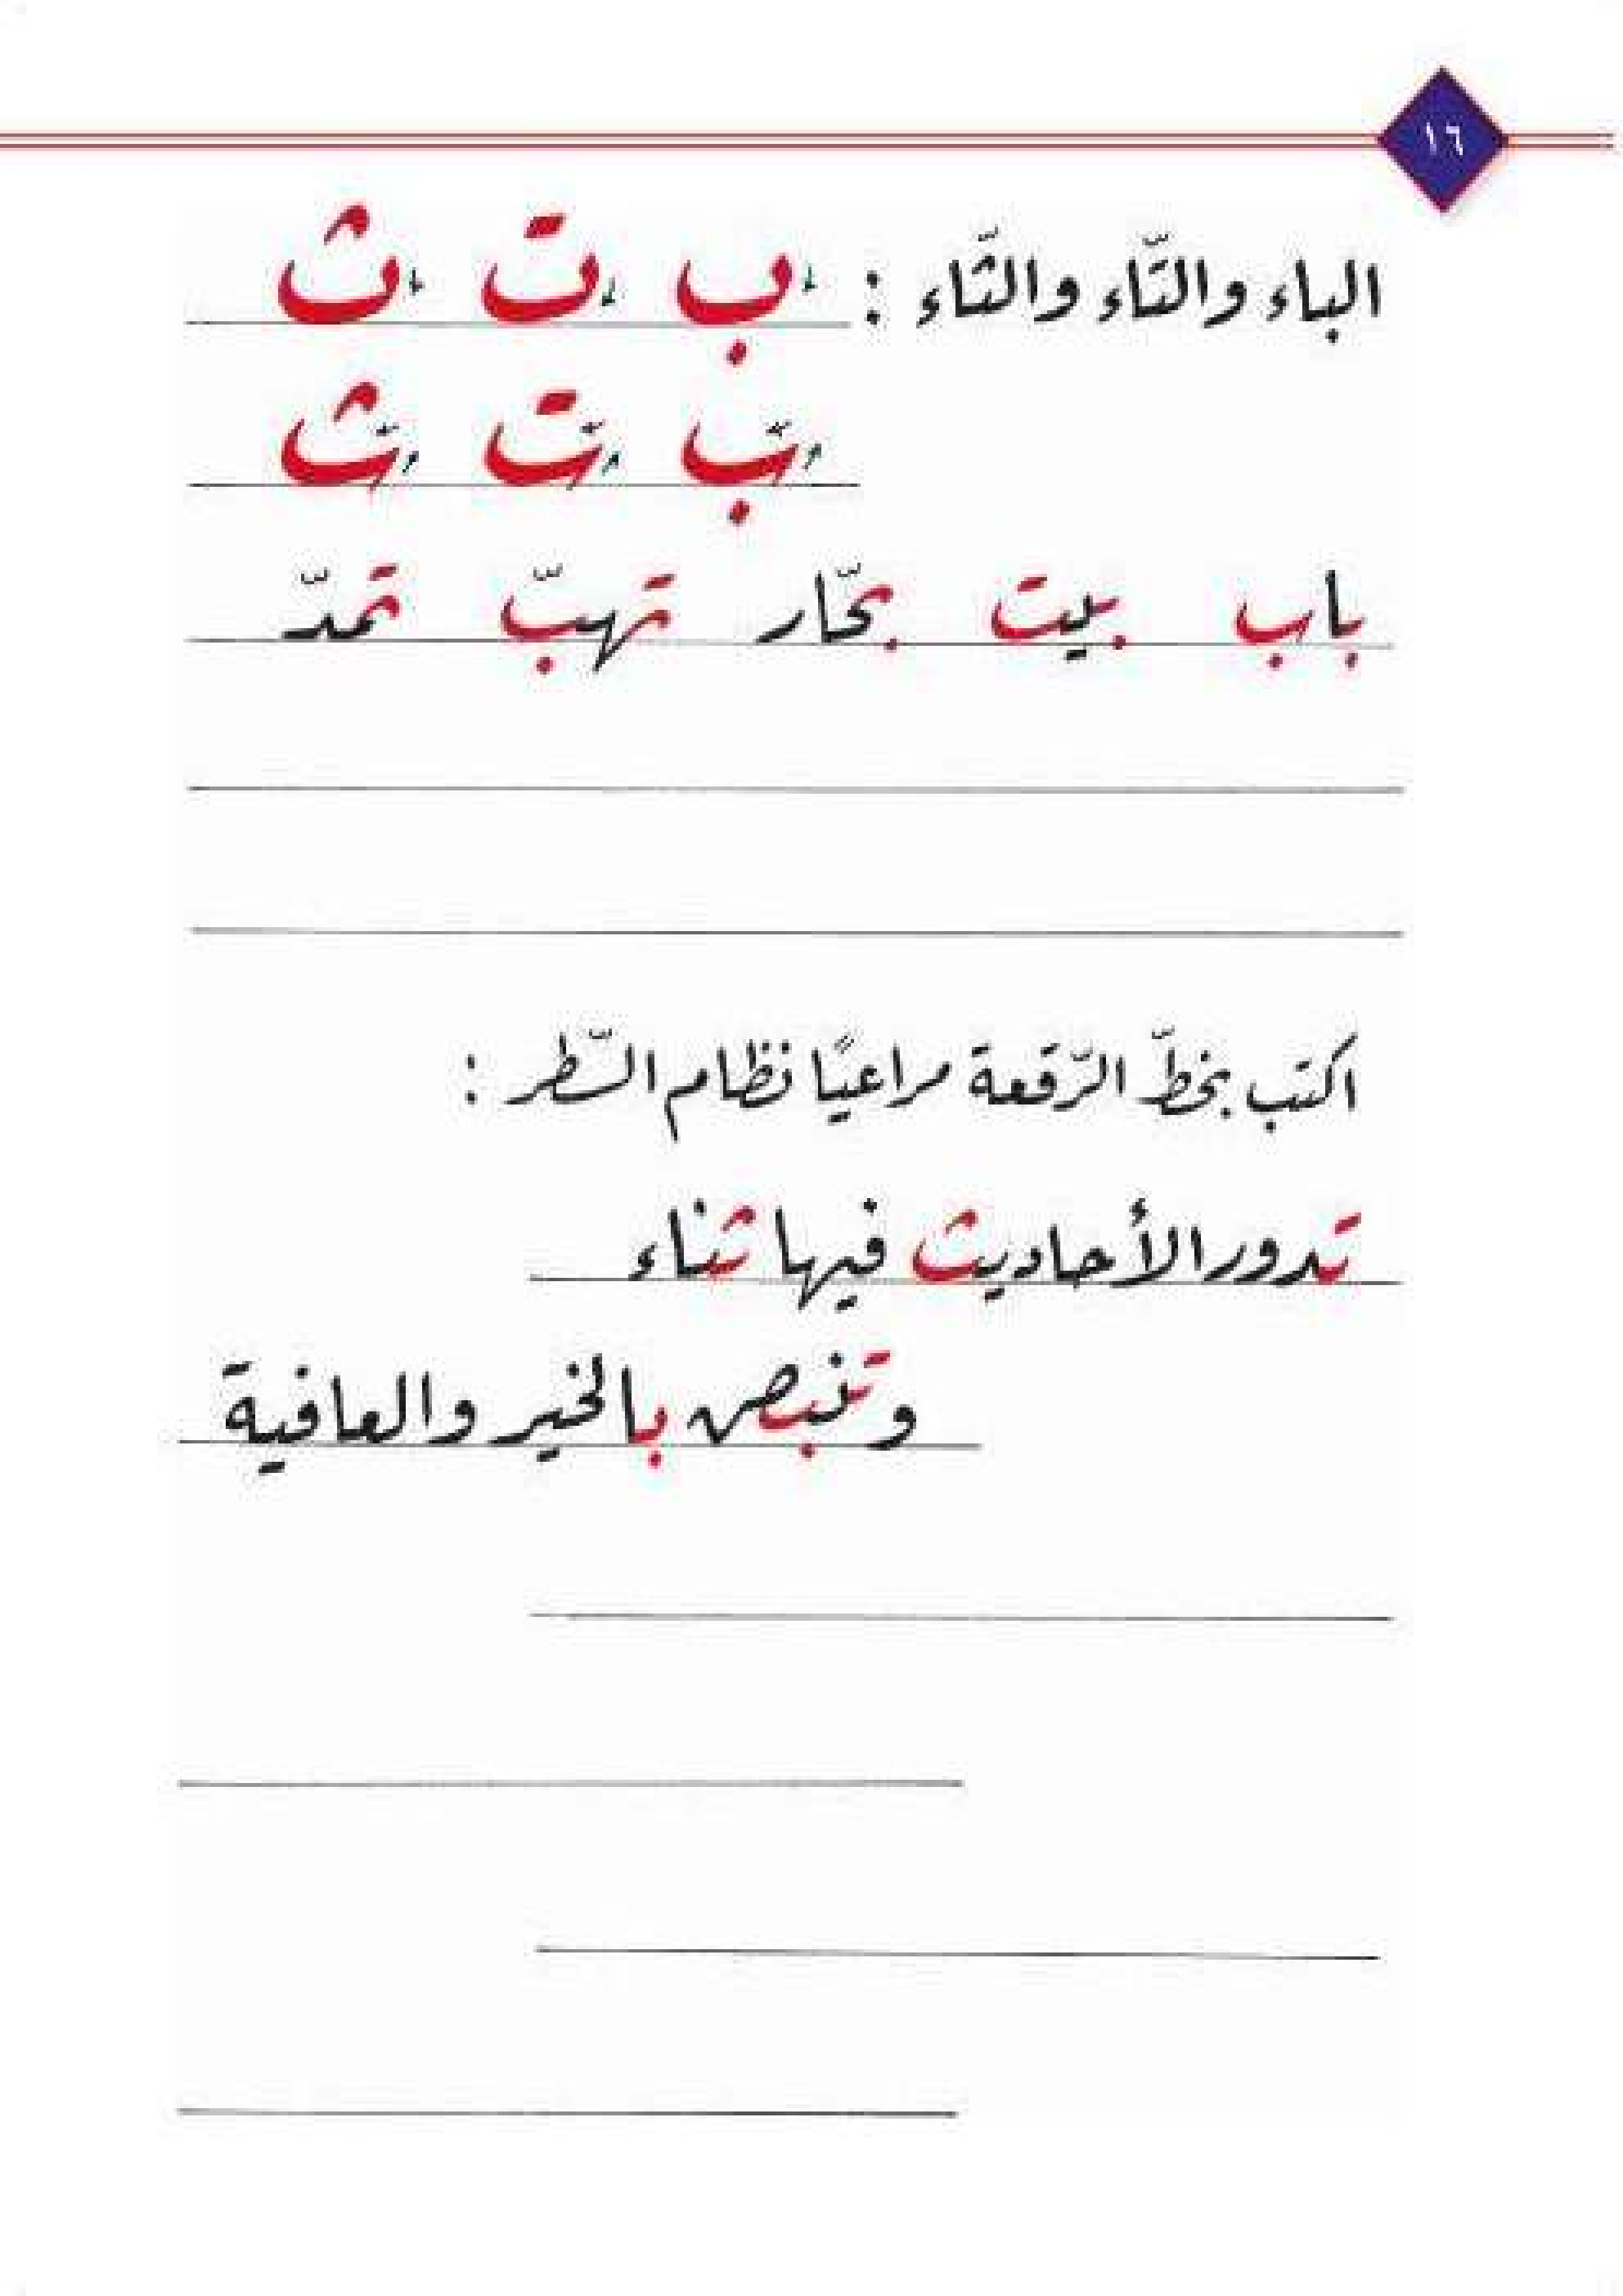 ١٦
الباء والتّاء والثّاء : ب ت ث
ب ت ث
باب بيت بحّار تهبّ تمدّ
اكتب بخطّ الرّقعة مراعيًا نظام السّطر :
تدور الأحاديث فيها ثناء
وتنبض بالخير والعافية